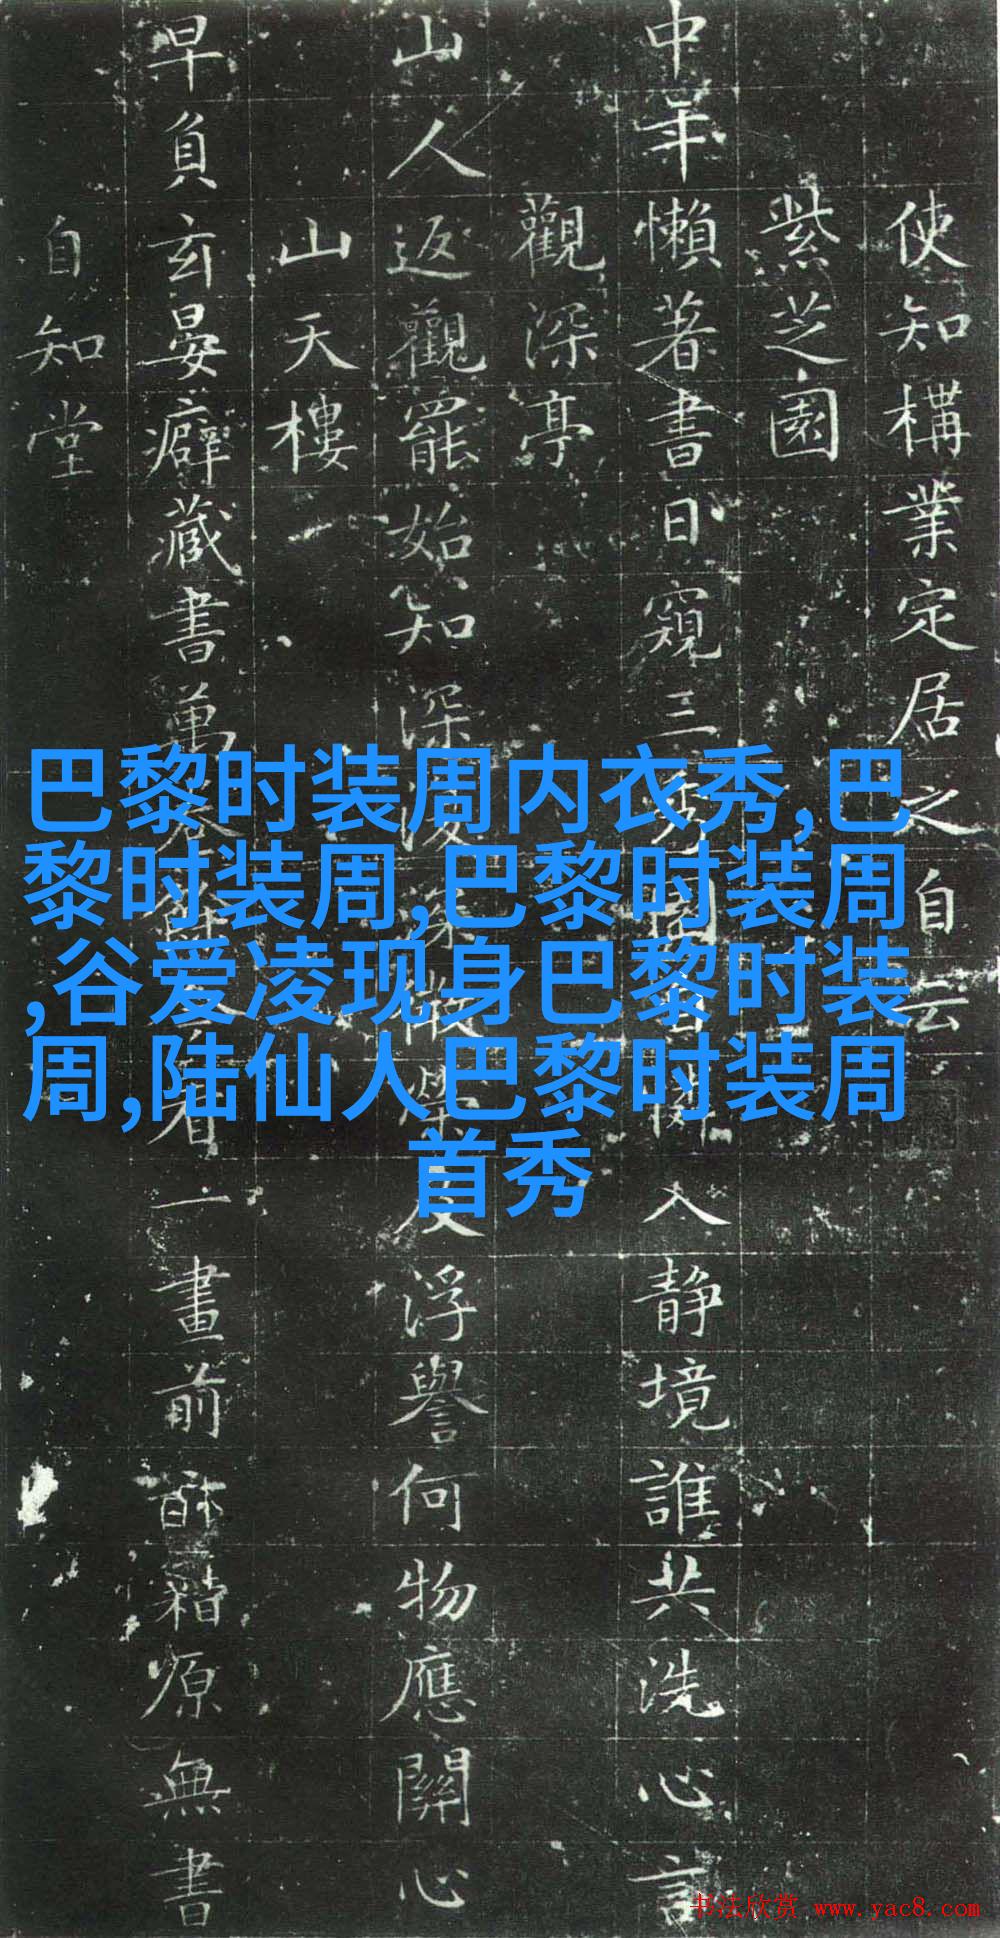 使知構業定居之自云
紫芝園
中年懶著書日窺三秀園入静境誰共洗心言
觀深亭
山人返觀罷始知深復深微榮及浮譽何物應關心
山天樓
早負玄晏癖藏書萬卷看一畫前籍原無書
自知堂
巴黎时装周内衣秀,巴
黎时装周,巴黎时装周
,谷爱凌现身巴黎时装
周,陆仙人巴黎时装周
首秀
书法欣赏 www.yac8.com